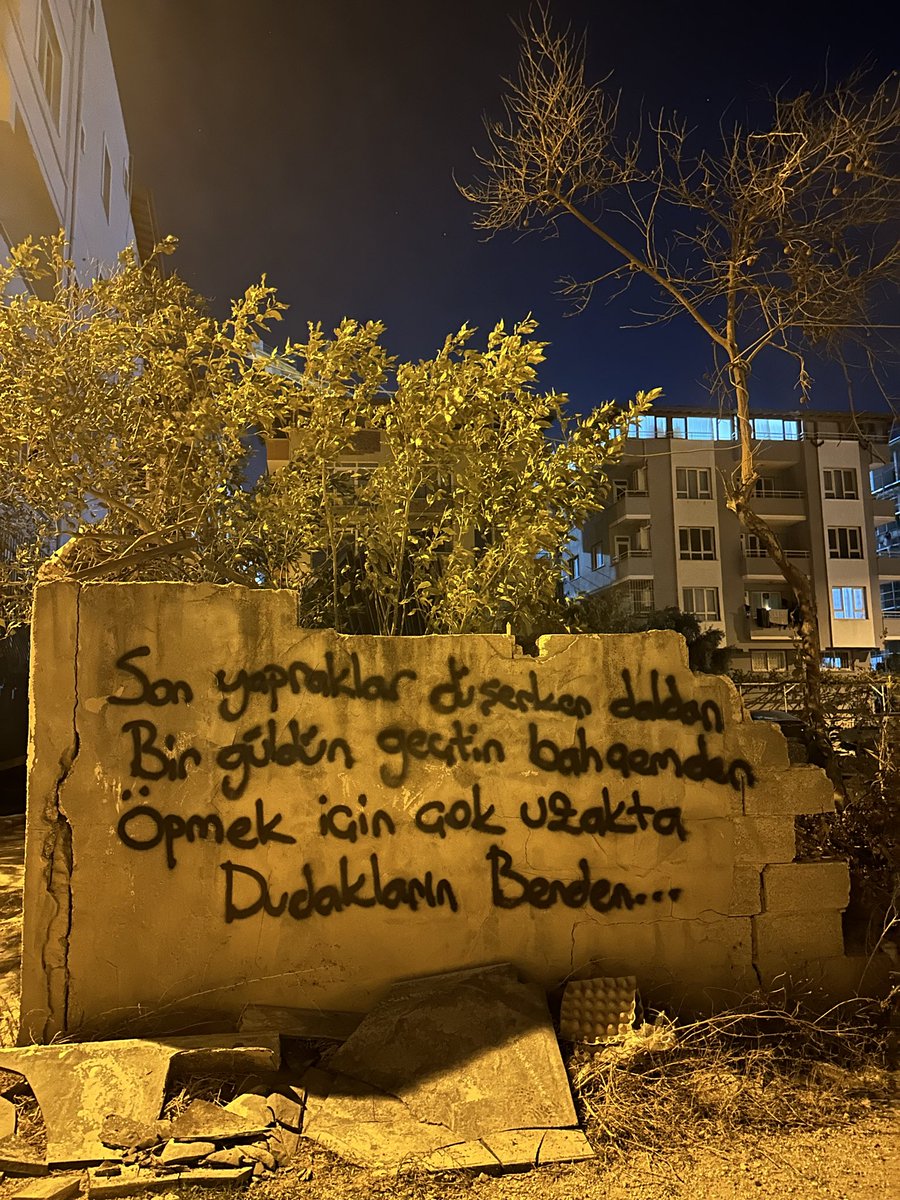 Son yapraklar düşerken daldan
Bir güldün geçtin bahçemden
Öpmek için çok uzakta
Dudakların Benden...